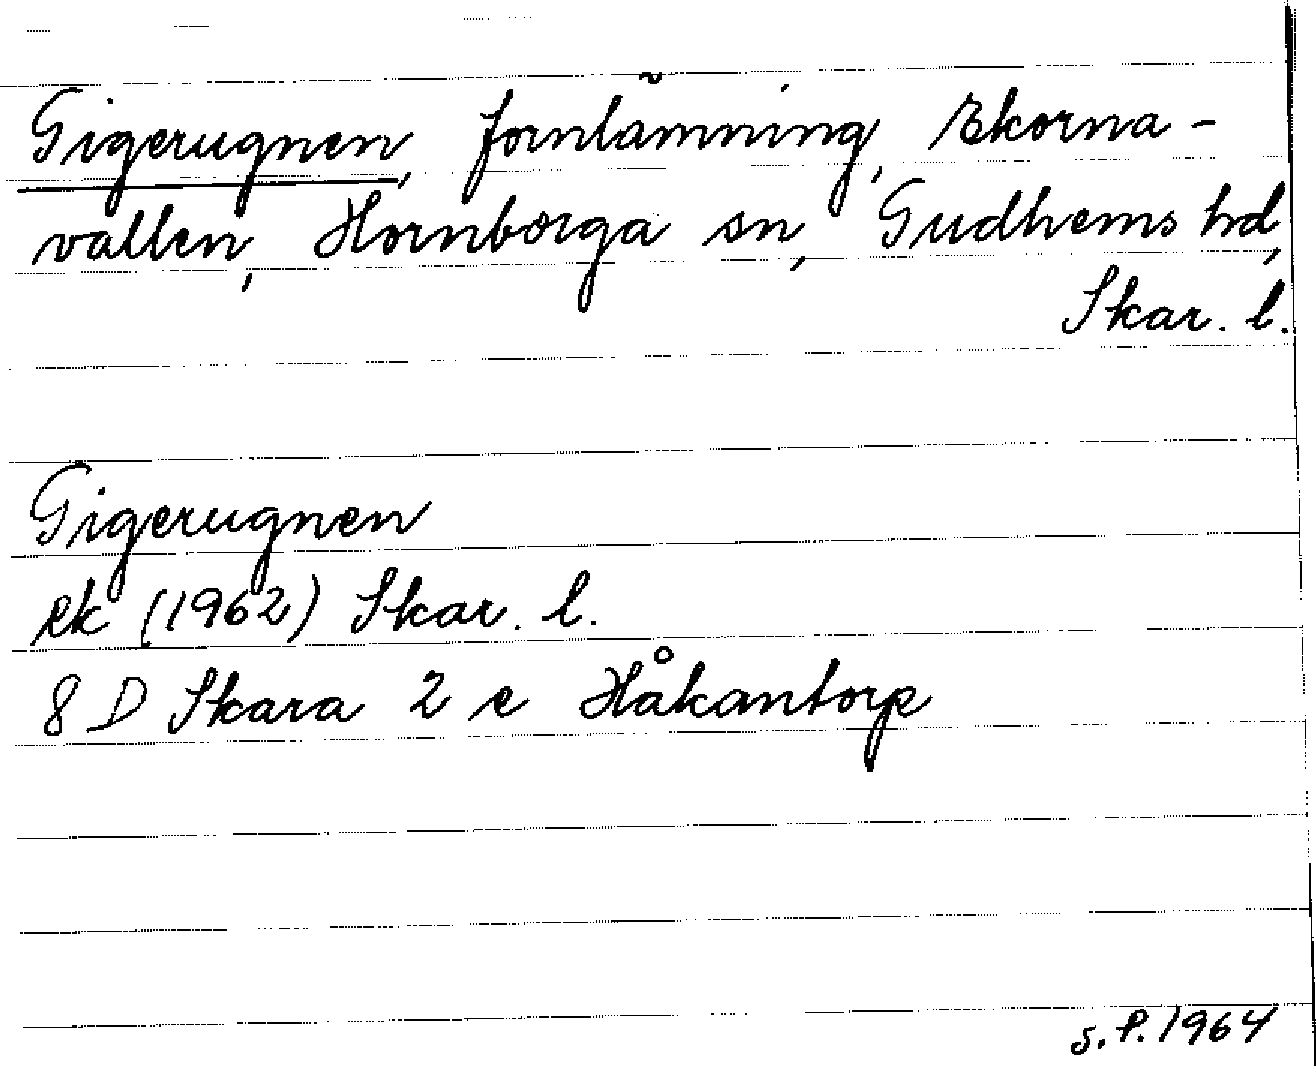 Gigerugnen, fornlämning, Ekorna-
vallen, Hornborga sn, Gudhems hd,
Skar. l.
Gigerugnen
Ek (1962) Skar. l.
8 D Skara 2 e Håkantorp
S.P. 1964